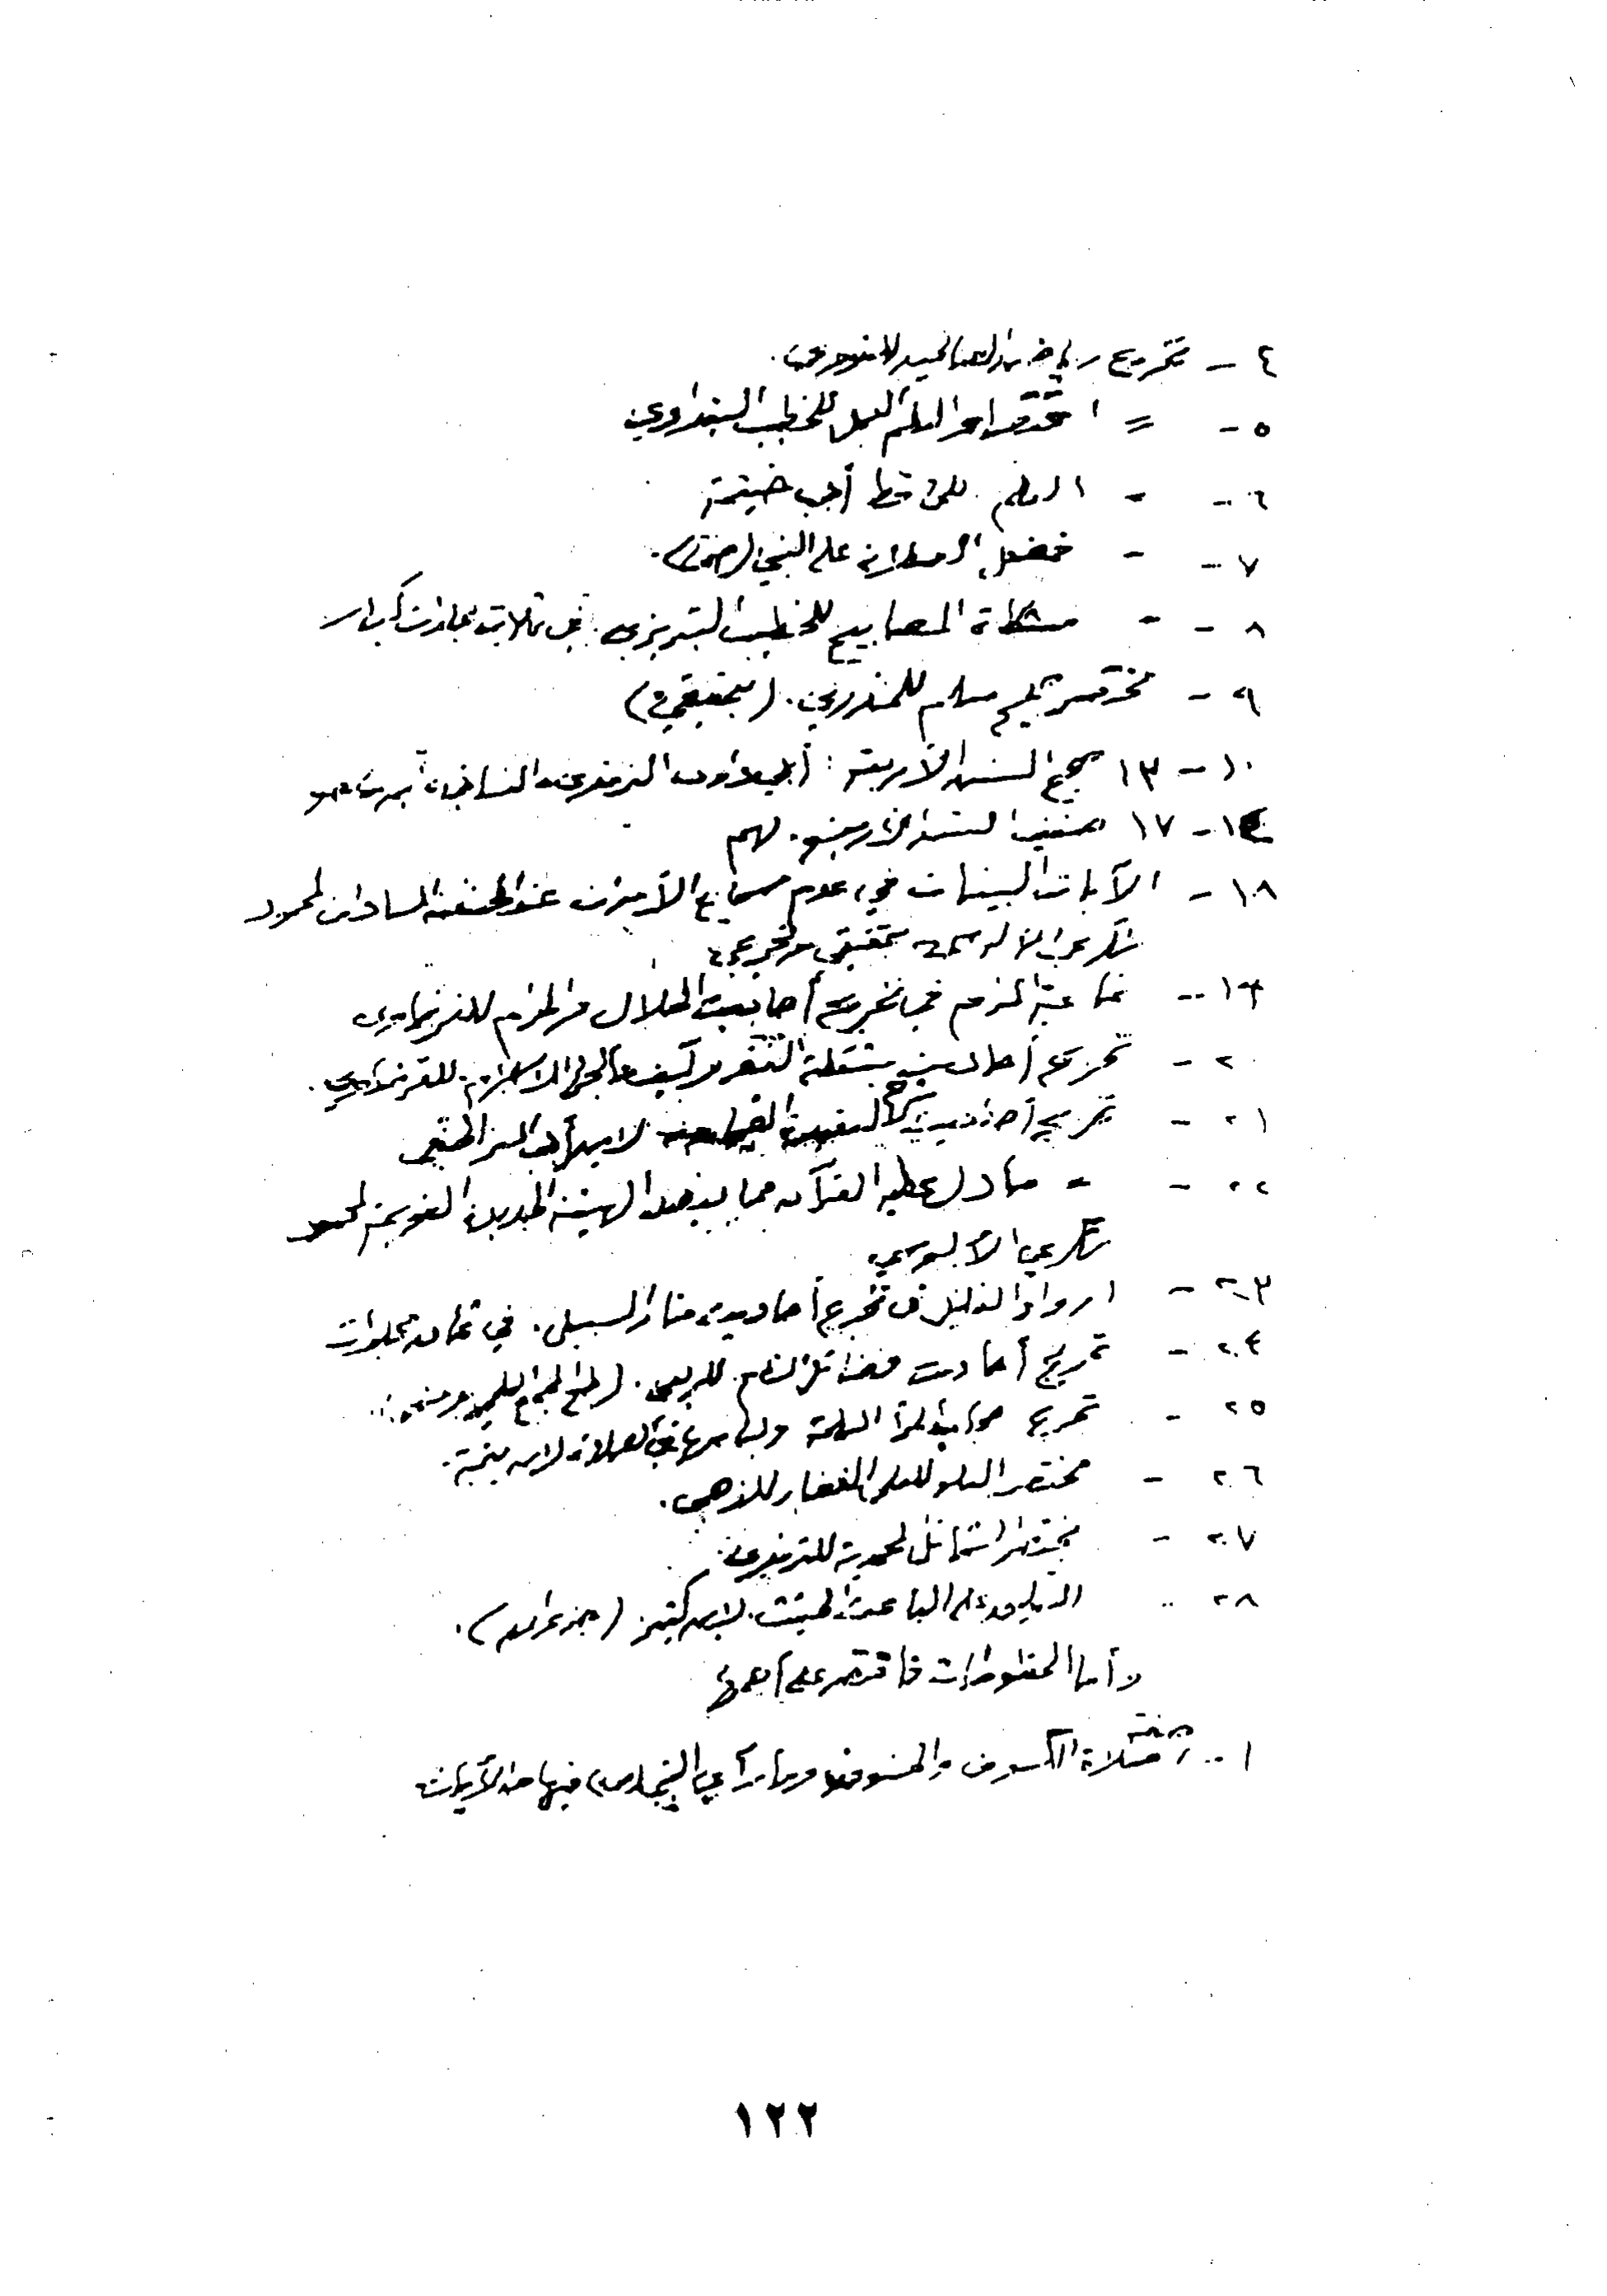 ٤ - تخريج رياض الصالحين للنووي.
٥ - = اقتضاء العلم العمل للخطيب البغدادي
٦ - - العلم للحافظ أبي خيثمة
٧ - - فضل الصلاة على النبي (ص).
٨ - - مشكاة المصابيح للخطيب التبريزي. في ثلاث مجلدات كبار
٩ - مختصر صحيح مسلم للمنذري. (تحقيق)
١٠ - ١٣ صحيح السنن الأربعة: أبي داود الترمذي والنسائي
١٤ - ١٧ ضعيف السنن الأربعة. لهم
١٨ - الآيات البينات في عدم سماع الأموات عند الحنفية السادات لمحمود
شكري الألوسي تحقيق وتخريج
١٩ - غاية المرام في تخريج أحاديث الحلال والحرام للقرضاوي
٢٠ - تخريج أحاديث مشكلة الفقر وكيف عالجها الإسلام. للقرضاوي.
٢١ - تخريج أحاديث شرح العقيدة الطحاوية لابن أبي العز الحنفي
٢٢ - = ما دل عليه القرآن مما يعضد الهيئة الجديدة القويمة لمحمود
شكري الألوسي
٢٣ - إرواء الغليل في تخريج أحاديث منار السبيل. في ثمان مجلدات
٢٤ - تخريج أحاديث فضائل الشام. للربعي.
٢٥ - تخريج حجاب المرأة المسلمة ولباسها في الصلاة لابن تيمية.
٢٦ - مختصر العلو للعلي الغفار للذهبي.
٢٧ - مختصر الشمائل المحمدية للترمذي.
٢٨ - على الباعث الحثيث. لابن كثير
وأما المخطوطات فأقتصر على أهمها
١ - صلاة الكسوف والخسوف وما رأى النبي (ص) فيها من الآيات
١٢٢